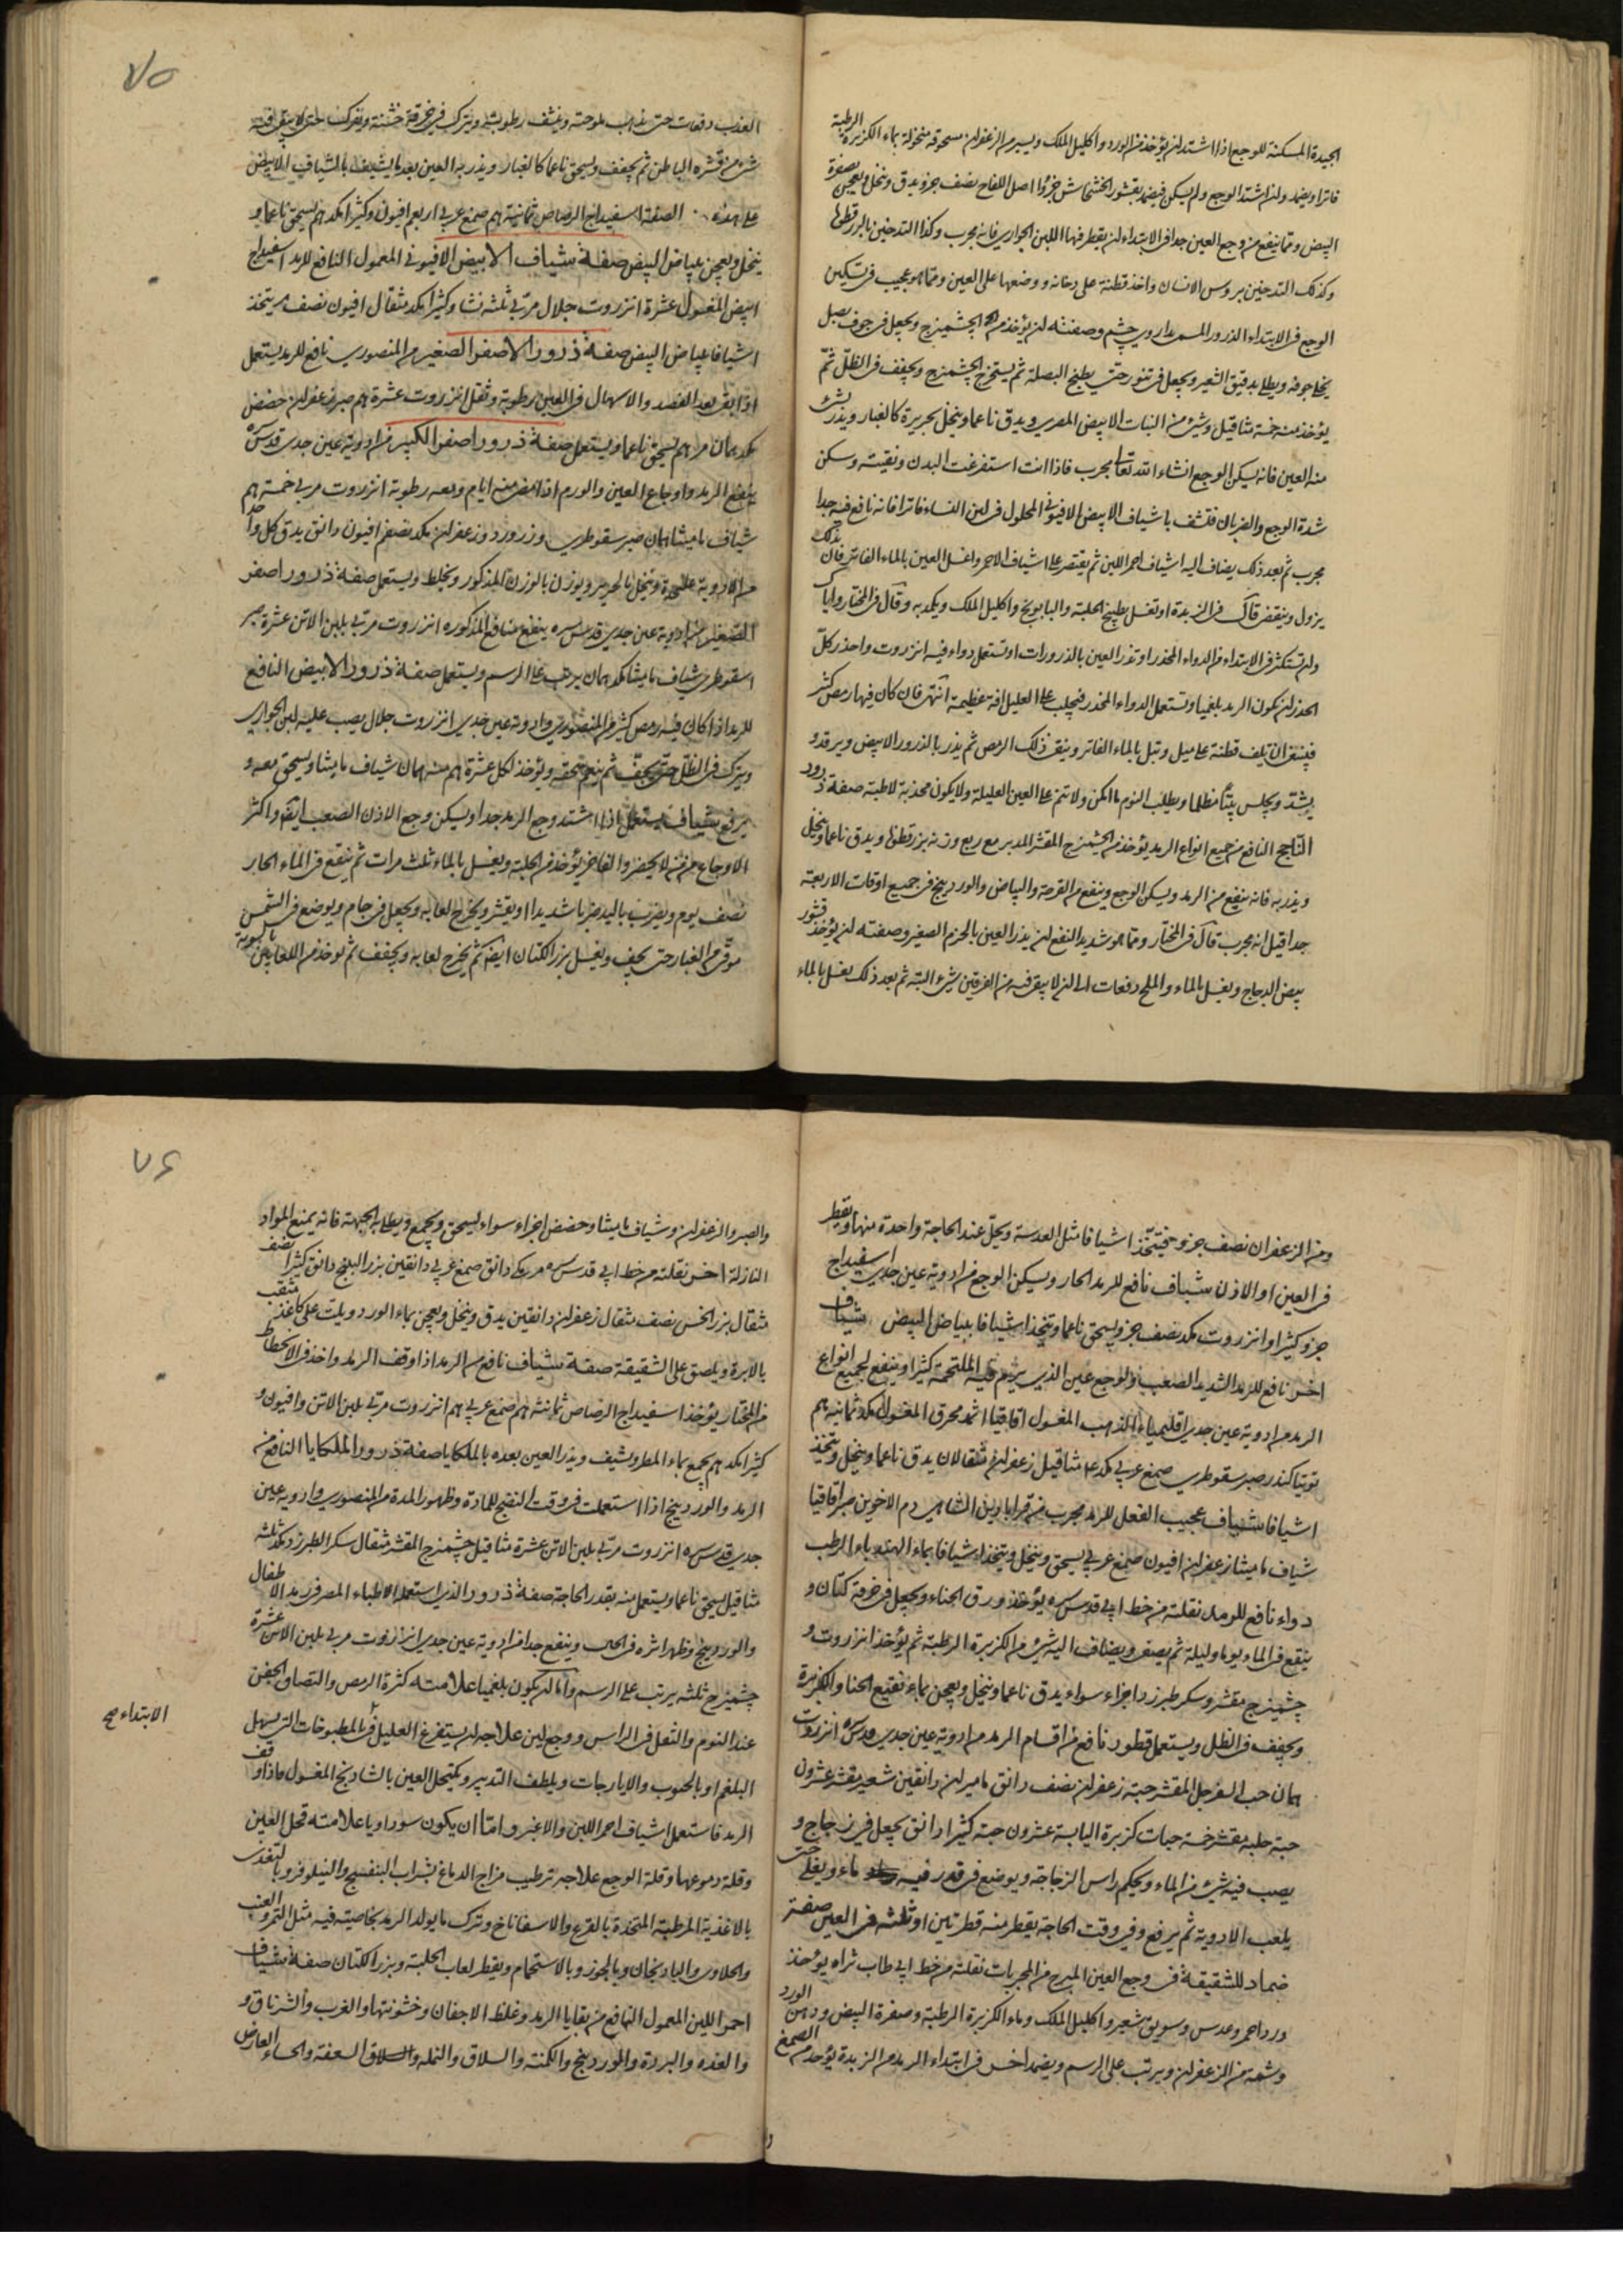 الجيدة المسكنة للوجع اذا اشتد ان يؤخذ من الورد واكليل الملك ويسير من الزعفران مسحوقة منخولة بماء الكزبرة الرطبة
فاترا ويضمد وان اشتد الوجع ولم يسكن فيضمد بقشور الخشخاش جزؤا اصل اللفاح نصف جزو يدق وينخل ويعجن بصفرة
البيض ومما ينفع من وجع العين جدا في الابتداء ان يقطر فيها اللبن الجواري فانه مجرب وكذا التدخين بالبزر قطونا
وكذلك التدخين بروس الانسان واخذ قطنة على دخانه ووضعها على العين ومما هو عجيب في تسكين
الوجع في الابتداء الذرور المسمى بداروي چشم وصفته ان يؤخذ من الچشميزج ويجعل في جوف بصل
يخلا جوفه ويطلى بدقيق الشعير ويجعل في تنور حتى يطبخ البصلة ثم يستخرج الچشميزج ويجفف في الظل ثم
يؤخذ منه خمسة مثاقيل وشئ من النبات الابيض المصري ويدق ناعما وينخل بحريرة كالغبار ويذر بشئ
منه العين فانه يسكن الوجع انشاء الله تعالى مجرب فاذا انت استفرغت البدن ونقيته وسكن
شدة الوجع والضربان فتشف باشياف الابيض الافيوني المحلول في لبن النساء فاترا فانه نافع فيه جدا
مجرب ثم بعد ذلك يضاف اليه اشياف احمر اللين ثم يقتصر على اشياف الاحمر واغسل العين بالماء الفاتر فان بذلك
يزول وينقضي قال في الزبدة او تغسل بطبيخ الحلبة والبابونج واكليل الملك ويكمد به وقال في المختار واياك
وان تستكثر في الابتداء من الدواء المخدر او تذر العين بالذرورات او تستعمل دواء فيه انزروت واحذر كل
الحذر ان يكون الرمد بلغميا وتستعمل الدواء المخدر فيجلب على العليل افة عظيمة انتهى فان كان فيها رمص كثير
فينبغي ان تلف قطنة على ميل وتبل بالماء الفاتر وينقى ذلك الرمص ثم يذر بالذرور الابيض ويرقد و
يشد ويجلس بيتا مظلما ويطلب النوم ما امكن ولا تنم على العين العليلة ولا يكون مخدته لاطية صفة ذرور
الناجح النافع من جميع انواع الرمد يؤخذ من الچشميزج المقشر المدبر مع ربع وزنه بزر قطونا ويدق ناعما وينخل
ويذر به فانه ينفع من الرمد ويسكن الوجع وينفع من القرحة والبياض والوردينج في جميع اوقات الاربعة
جدا قيل انه مجرب قال في المختار ومما هو شديد النفع ان يذر العين بالحزم الصغير وصفته ان يؤخذ قشور
بيض الدجاج ويغسل بالماء والملح دفعات الى ان لا يبقى فيه من الغرقين شئ البتة ثم بعد ذلك يغسل بالماء
٧٥
العذب دفعات حتى يذهب ملوحته وينشف رطوبته ويترك في خرقة خشنة ويفرك حتى لا يبقى فيه
شئ من قشره الباطن ثم يجفف ويسحق ناعما كالغبار ويذر به العين بعد ما يشيف بالشياف الابيض
على هذه الصفة اسفيداج الرصاص ثمانية هم صمغ عربي اربعم افيون وكثيرا مكد هم يسحق ناعما و
ينخل ويعجن ببياض البيض صفة شياف الابيض الافيوني المعمول النافع للرمد اسفيداج
ابيض المغسول عشرة انزروت جلال مربى ثلثه نشا وكثيرا مكد مثقال افيون نصف م يتخذ
اشيافا ببياض البيض صفة ذرور الاصفر الصغير من المنصوري نافع للرمد يستعمل
اذا بقى بعد الفصد والاسهال في العين رطوبة وثقل انزروت عشرة هم صبر زعفران حضض
مكد همان مر هم يسحق ناعما ويستعمل صفة ذرور اصفر الكبير من ادوية عين جدى قدس سره
ينفع الرمد واوجاع العين والورم اذا مضى منه ايام ومعه رطوبة انزروت مربى خمسة هم
شياف ماميثا همان صبر سقوطري وزرورد وزعفران مكد نصفم افيون دانق يدق كل واحد
من الادوية عليحدة وتنخل بالحرير ويوزن بالوزن المذكور ويخلط ويستعمل صفة ذرور اصفر
الصغير من ادوية عين جدى قدس سره ينفع منافع المذكوره انزروت مربى بلبن الاتن عشرة صبر
اسقوطري شياف ماميثا مكد همان يرتب على الرسم ويستعمل صفة ذرور الابيض النافع
للرمد اذا كان فيه رمص كثير من المنصوري وادوية عين جدى انزروت جلال يصب عليه لبن الجواري
ويترك في الظل حتى يجف ثم ينعم سحقه ويؤخذ لكل عشرة هم منه همان شياف ماميثا ويسحق معه و
يرفع شياف يستعمل اذا اشتد وجع الرمد جدا ويسكن وجع الاذن الصعب ايضا واكثر
الاوجاع من فنه لا يحضر والفاخر يؤخذ من الحلبة ويغسل بالماء ثلث مرات ثم ينقع في الماء الحار
نصف يوم ويضرب باليد ضربا شديدا او تقشر ويخرج لعابه ويجعل في جام ويوضع في الشمس
موقى من الغبار حتى يجف ويغسل بزر الكتان ايضا ثم يخرج لعابه ويجفف ثم يؤخذ من اللعابين بالسوية
ومن الزعفران نصف جزو فيتخذ اشيافا مثل العدسة ويحل عند الحاجة واحدة منها ويقطر
في العين او الاذن شياف نافع للرمد الحار ويسكن الوجع من ادوية عين جدى اسفيداج
جزو كثيرا وانزروت مكد نصف جزو يسحق ناعما ويتخذ اشيافا ببياض البيض شياف
اخر نافع للرمد الشديد الصعب ولوجع عين الذي يرم فيه الملتحمة كثيرا وينفع لجميع انواع
الرمد من ادوية عين جدى اقليمياء الذهب المغسول اقاقيا اثمد محرق المغسول مكد ثمانية هم
توتيا كندر صبر سقوطري صمغ عربي مكد مثاقيل زعفران مثقالان يدق ناعما وينخل ويتخذ
اشيافا شياف عجيب الفعل للرمد مجرب من قراباذين الشاهي دم الاخوين صبر اقاقيا
شياف ماميثا زعفران افيون صمغ عربي يسحق وينخل ويتخذ اشيافا بماء الهندباء الرطب
دواء نافع للرمد نقلته من خط ابي قدس سره يؤخذ ورق الحناء ويجعل في خرقة كتان و
ينقع في الماء يوما وليلة ثم يصفى ويضاف اليه شئ من الكزبرة الرطبة ثم يؤخذ انزروت و
چشميزج مقشر وسكر طبرزد اجزاء سواء يدق ناعما وينخل ويعجن بماء نقيع الحنا والكزبرة
ويجفف في الظل ويستعمل قطور نافع من اقسام الرمد من ادوية عين جدى قدس سره انزروت
همان حب السفرجل المقشر حبة زعفران نصف دانق ماميران دانقين شعير مقشر عشرون
حبة حلبه مقشر خمسة حبات كزبرة اليابسة عشرون حبة كثيرا دانق يجعل في زجاج و
يصب فيه شئ من الماء ويحكم راس الزجاجة ويوضع في قدر فيه ماء ويغلى حتى
يلعب الادوية ثم يرفع وفي وقت الحاجة يقطر منه قطرتين او ثلثه في العين صفة
ضماد للشقيقة في وجع العين المبرح من المجربات نقلته من خط ابي طاب ثراه يؤخذ
ورد احمر وعدس وسويق شعير واكليل الملك وماء الكزبرة الرطبة وصفرة البيض ودهن الورد
وشئ من الزعفران ويرتب على الرسم ويضمد اخر في ابتداء الرمد من الزبدة يؤخذ من الصمغ
٧٦
والصبر والزعفران وشياف ماميثا وحضض اجزاء سواء يسحق ويجمع ويطلى به الجبهة فانه يمنع المواد
النازلة اخر نقلته من خط ابي قدس سره مر مكى دانق صمغ عربي دانقين بزر البنج دانق كثيرا نصف
مثقال بزر الخس نصف مثقال زعفران دانقين يدق وينخل ويعجن بماء الورد ويلت على كاغذ مثقب
بالابرة ويلصق على الشقيقة صفة شياف نافع من الرمد اذا وقف الرمد واخذ في الانحطاط
من المختار يؤخذ اسفيداج الرصاص ثمانية هم صمغ عربي هم انزروت مربى بلبن الاتن وافيون و
كثيرا مكد هم يجمع بماء المطر ويشيف ويذر العين بعده بالملكايا صفة ذرور الملكايا النافع من
الرمد والوردينج اذا استعملت في وقت النضج للمادة وظهور المدة من المنصوري وادوية عين
جدى قدس سره انزروت مربى بلبن الاتن عشرة مثاقيل چشميزج المقشر مثقال سكر الطبرزد مكد ثلثه
مثاقيل يسحق ناعما ويستعمل منه بقدر الحاجة صفة ذرور الذي استعمله الاطباء المصر في رمد الاطفال
والوردينج وظهر اثره في الحال وينفع جدا من ادوية عين جدى انزروت مربى بلبن الاتن عشرة
چشميزج ثلثه يرتب على الرسم واما ان يكون بلغميا علامته كثرة الرمص والتصاق الجفن
عند النوم والثقل في الراس ووجع لين علاجه ان يستفرغ العليل في المطبوخات التي يسهل
البلغم او بالحبوب والايارجات ويلطف التدبير ويكتحل العين بالشادنج المغسول فاذا وقف
الرمد فاستعمل اشياف احمر اللين والاغبر واما ان يكون سوداويا علامته قحل العين
وقلة دموعها وقلة الوجع علاجه ترطيب مزاج الدماغ بشراب البنفسج والنيلوفر وبالتغذي
بالاغذية المرطبة المتخذة بالقرع والاسفاناخ وترك ما يولد الرمد بخاصيته فيه مثل التمر والعنب
والحلاوى والبادنجان وبالجوز وبالاستحمام ويقطر لعاب الحلبة وبزر الكتان صفة شياف
احمر اللين المعمول النافع من بقايا الرمد وغلظ الاجفان وخشونتها والغرب والشرناق و
والغده والبردة والوردينج والكمنة والسلاق والنمله والسعفة والحساء العارض
الابتداء صح